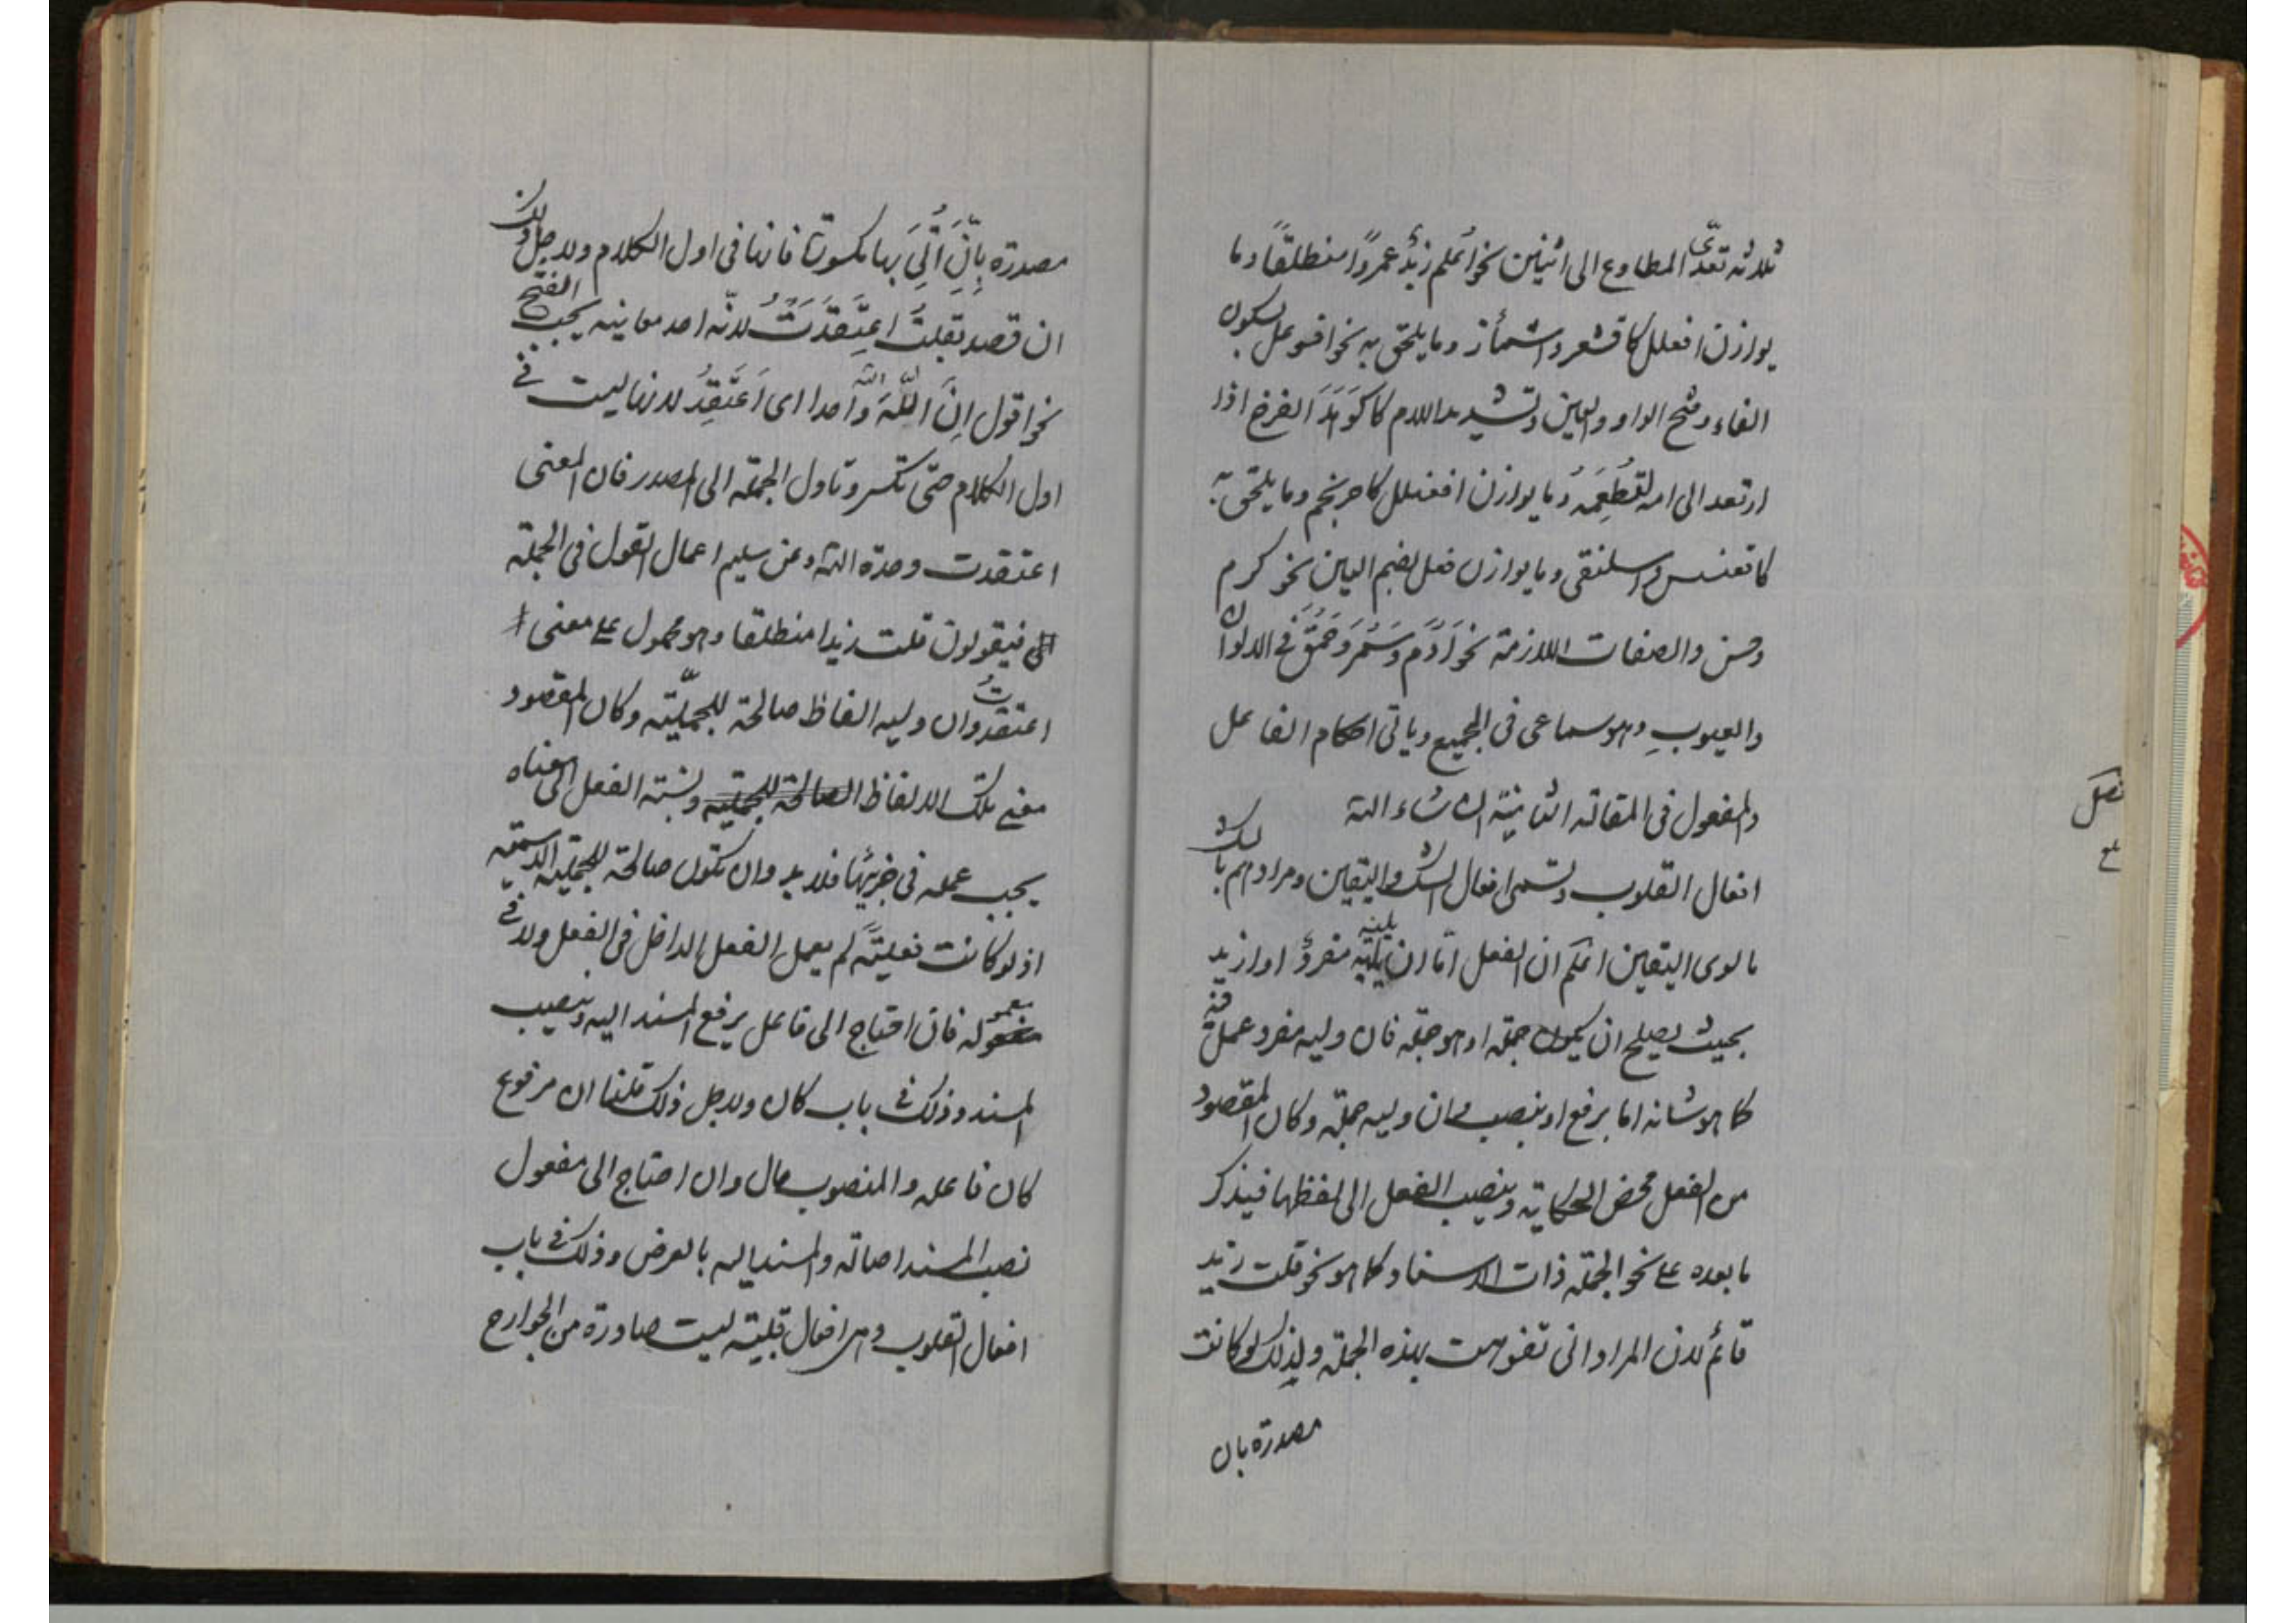 ثلاثه تعدّى المطاوع الى اثنين نحو اُعلم زيدٌ عمروًا منطلقًا وما
يوازن افعلل كاقشعر واشمأز وما يلحق به نحو افوعل بسكون
الفاء وفتح الواو والعين وتشديد اللام كاكوَهَدَ الفرخ اذا
ارتعد الى امه لتُطعِمَهُ وما يوازن افعنلل كاحرنجم وما يلحق به
كاقعنسس واسلنقى وما يوازن فعل بضم العين نحو كرم
وحسن والصفات اللازمة نحو اَدُمَ وسَمُرَ وحَمُقَ فى الالوان
والعيوبِ وهو سماعى فى الجميع وياتى احكام الفاعل
والمفعول فى المقالة الثانية ان شاء الله
فصل
افعال القلوب وتسمى افعال الشك واليقين ومرادهم بالشك
ما لوى اليقين اعلم ان الفعل امّا ان يليه مفردٌ او ازيد
بحيث يصلح ان يكون جملة او هو جملة فان وليه مفرد عمل فيه
كما هو شانه اما برفع او بنصب وان وليه جملة وكان المقصود
من الفعل محض الحكاية وينصب الفعل الى لفظها فيذكر
ما بعده على نحو الجملة ذات الاسناد كما هو نحو قلت زيد
قائم لان المراد انى تفوهت بهذه الجملة ولذلك لو كانت
مصدرة بان
مصدرة بِاِنَّ اُتِىَ بها مكسورتا فانها فى اول الكلام ولاجل ذلك
ان قصد بقلتُ اعتَقَدَتُ لانّه احد معانيه يجب الفتح
نحو اقول اِنَّ اللّهَ واحدا اى اَعتَقِدُ لانها ليست فى
اول الكلام حتى تكسر وتاول الجملة الى المصدر فان المعنى
اعتقدت وحدة الله وعن سليم اعمال القول فى الجملة
فيقولون قلت زيدا منطلقا وهو محمول على معنى
اعتقدتُ وان وليه الفاظ صالحة للجمليّة وكان المقصود
معنى تلك الالفاظ الصالحة للجملية ونسبة الفعل الى معناه
يجب عمله فى جزئيها فلابد وان تكون صالحة للجملية الاسمية
اذ لو كانت فعليةً لم يعمل الفعل الداخل فى الفعل ولا فى
معموله فان احتاج الى فاعل يرفع المسند اليه وينصب
المسند وذلك فى باب كان ولاجل ذلك قلنا ان مرفوع
كان فاعله والمنصوب حال وان احتاج الى مفعول
نصب المسند اصالة والمسند اليه بالعرض وذلك فى باب
افعال القلوب وهى افعال قلبية ليست صادرة من الجوارح